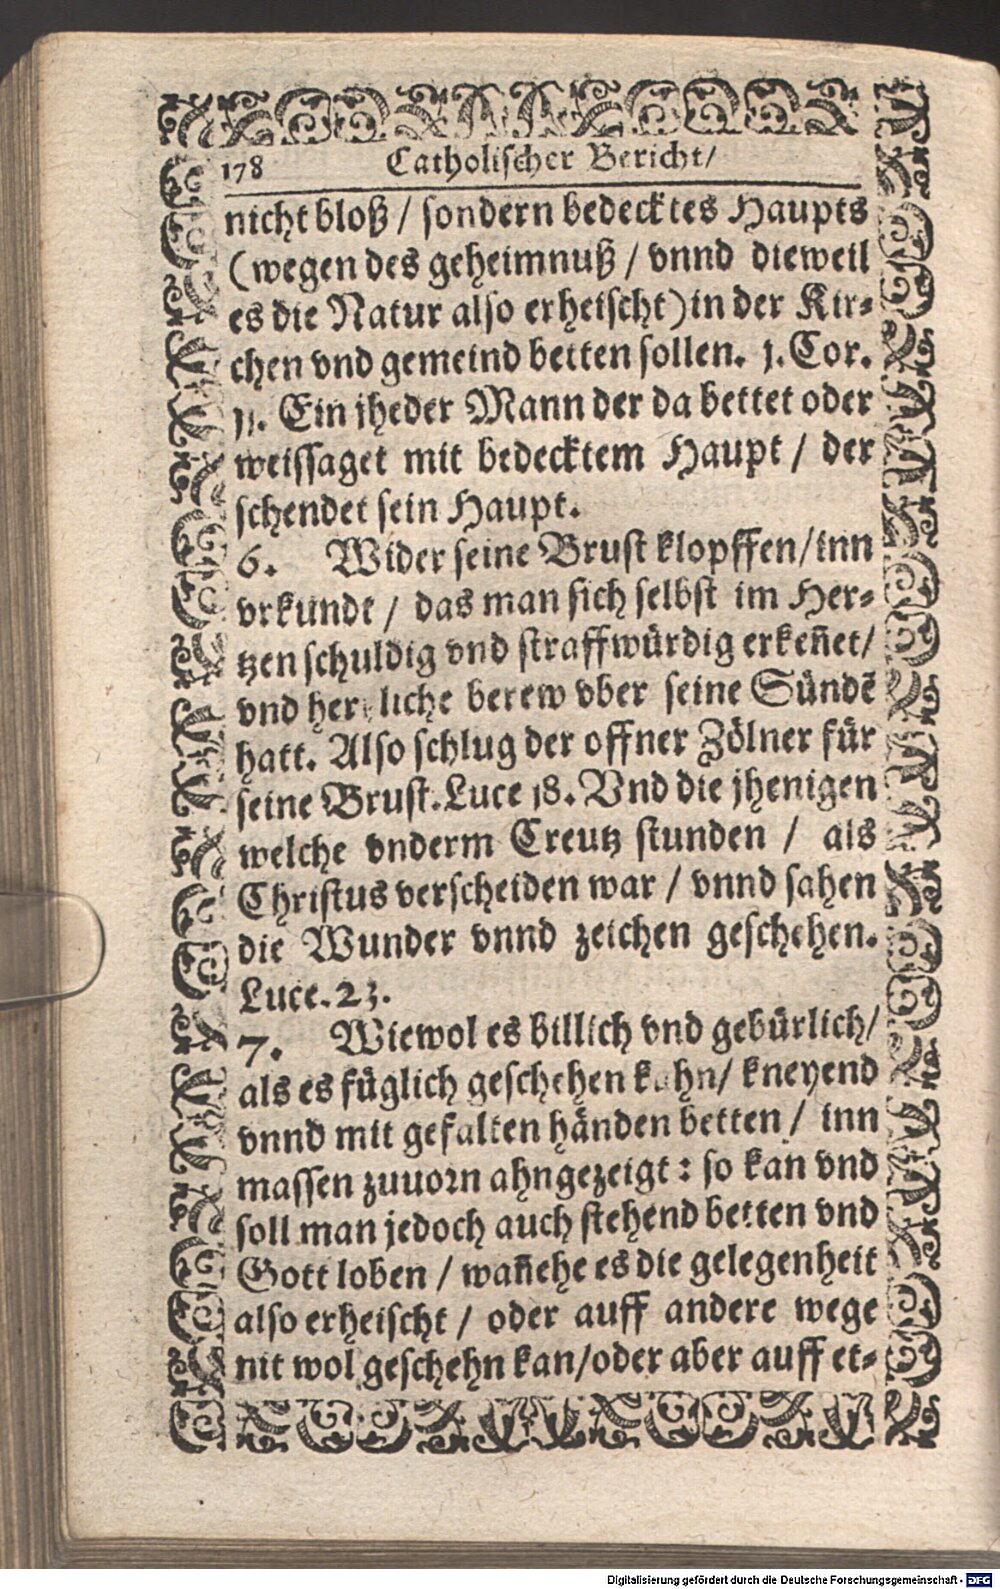 178 Catholischer Bericht/
nicht bloß / sondern bedecktes Haupts
(wegen des geheimnuß / vnnd dieweil
es die Natur also erheischt) in der Kir⸗
chen vnd gemeind betten sollen. 1. Cor.
11. Ein jheder Mann der da bettet oder
weissaget mit bedecktem Haupt / der
schendet sein Haupt.
6. Wider seine Brust klopffen/inn
vrkundt / das man sich selbst im Her⸗
tzen schuldig vnd straffwürdig erkeñet/
vnd hertzliche berew vber seine Sündẽ
hatt. Also schlug der offner Zölner für
seine Brust. Luce 18. Vnd die jhenigen
welche vnderm Creutz stunden / als
Christus verscheiden war / vnnd sahen
die Wunder vnnd zeichen geschehen.
Luce. 23.
7. Wiewol es billich vnd gebürlich/
als es füglich geschehen kahn/ kneyend
vnnd mit gefalten händen betten / inn
massen zuuorn ahngezeigt : so kan vnd
soll man jedoch auch stehend betten vnd
Gott loben / wañehe es die gelegenheit
also erheischt / oder auff andere wege
nit wol geschehn kan/oder aber auff et⸗
Digitalisierung gefördert durch die Deutsche Forschungsgemeinschaft - DFG